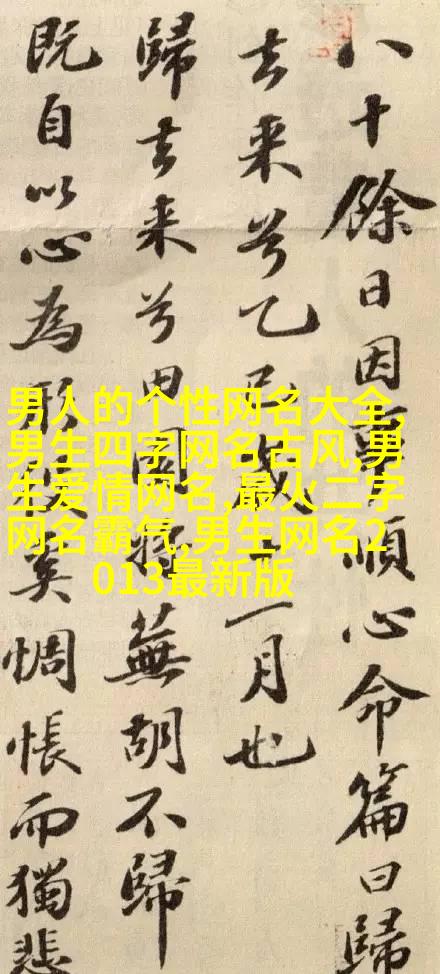 八十餘日因事順心命篇曰歸
去来兮乙巳歲十一月也
歸去来兮田園將蕪胡不歸
既自以心為形役奚惆悵而獨悲
男人的个性网名大全,
男生四字网名古风,男
生爱情网名,最火二字
网名霸气,男生网名2
013最新版